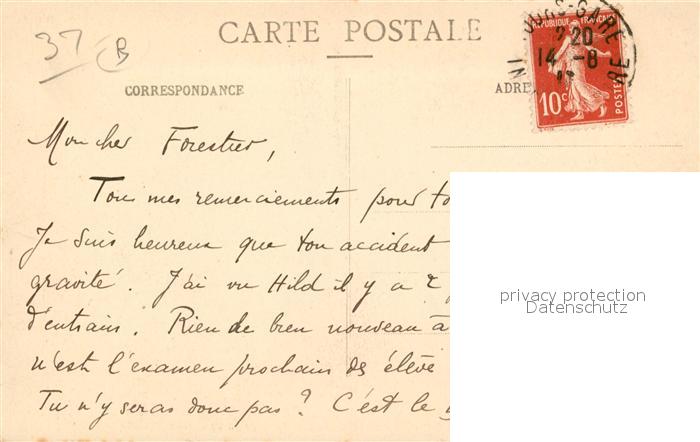 37 B
CARTE POSTALE
CORRESPONDANCE
ADRE
REPUBLIQUE FRANÇAISE
10c POSTES
-GARE
20
14 -8
Mon cher Forestier,
Tous mes remerciements pour
Je suis heureux que ton accident
gravité. J'ai vu Hild il y a 2
d'entrain. Rien de bien nouveau à
n'est l'examen prochain des élèv
Tu n'y seras donc pas ? C'est le
privacy protection
Datenschutz